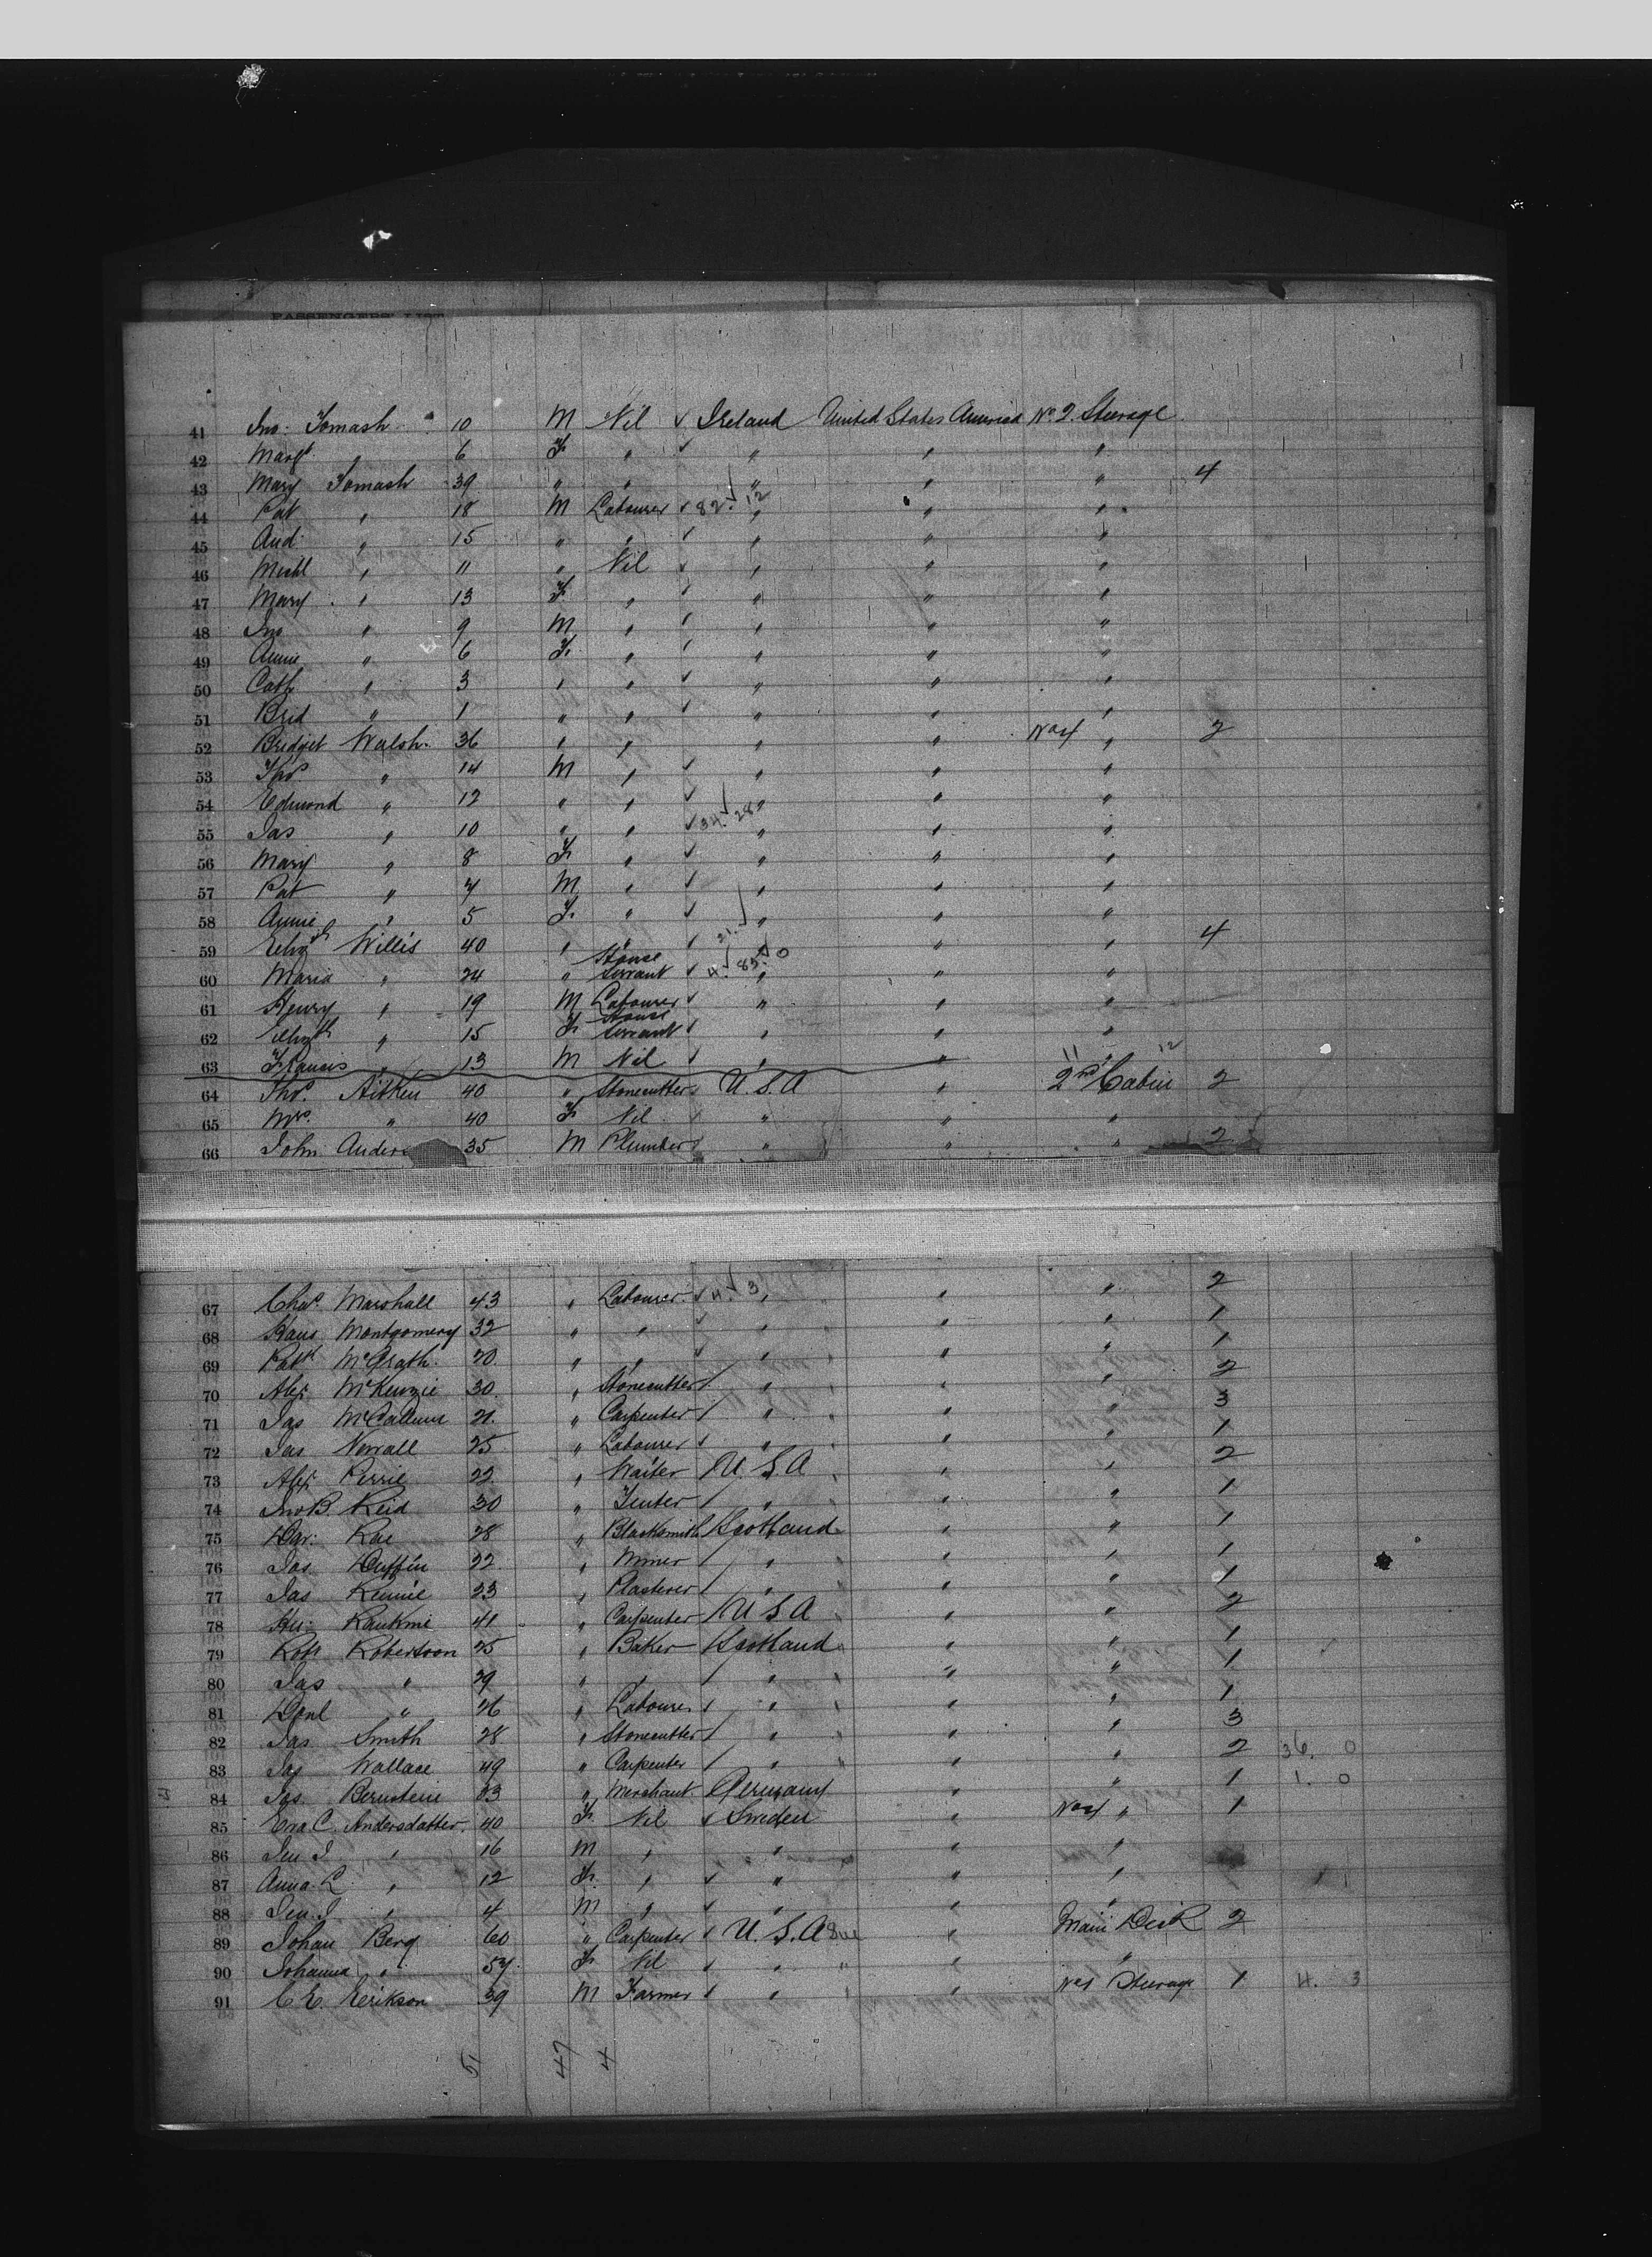 PASSENGERS' LIST
41 Jno. Tomash 10 M Nil ✓ Ireland United States America No. 2. Steerage
42 Margt " 6 F " ✓ " " "
43 Mary Tomash 39 " " " " " 4
44 Pat " 18 M Labourer ✓ 82. 12 " " "
45 And " 15 " " ✓ " " "
46 Michl " 11 " Nil ✓ " " "
47 Mary " 13 F " ✓ " " "
48 Jno " 9 M " ✓ " " "
49 Annie " 6 F " ✓ " " "
50 Cath " 3 " " ✓ " " "
51 Brid " 1 " " ✓ " " "
52 Bridget Walsh 36 " " " " No 4 " 2
53 Thos " 14 M " ✓ " " "
54 Edmond " 12 " " ✓ " " "
55 Jas " 10 " " ✓ 34. 28 " " "
56 Mary " 8 F " ✓ " " "
57 Pat " 7 M " ✓ " " "
58 Annie " 5 F " ✓ " " "
59 Elizth Willis 40 " " ✓ 21. " " " 4
60 Maria " 24 " House Servant ✓ 4. 85. 0 " " "
61 Henry " 19 M Labourer ✓ " " "
62 Elizth " 15 F House Servant ✓ " " "
63 Francis " 13 M Nil ✓ " " " 11 12
64 Thos. Aitken 40 " Stonecutter U.S.A " 2nd Cabin 2
65 Mrs. " 40 F Nil " " "
66 John Ander 35 M Plumber " " " 2
67 Chas. Marshall 43 " Labourer ✓ 4. 3 " " " 2
68 Hans Montgomery 32 " " ✓ " " " 1
69 Patk McGrath 20 " " ✓ " " " 1
70 Alex McKenzie 30 " Stonecutter " " " 2
71 Jas McCallum 21 " Carpenter " " " 3
72 Jas Norrall 25 " Labourer ✓ " " " 1
73 Alex Perrie 22 " Waiter U.S.A " " 2
74 Jno B. Reid 30 " Tenter " " " 1
75 Dav: Rae 28 " Blacksmith Scotland " " 1
76 Jas Duffin 22 " Miner " " " 1
77 Jas Rennie 23 " Plasterer " " " 1
78 Hu: Rankine 41 " Carpenter U S A " " 2
79 Robt Robertson 25 " Baker Scotland " " 1
80 Jas " 29 " " " " " 1
81 Donl " 26 " Labourer " " " 1
82 Jas Smith 28 " Stonecutter " " " 3
83 Jas Wallace 49 " Carpenter " " " 2 36. 0
84 Jas. Bernstein 33 " Merchant Germany " " 1 1. 0
85 Eva C. Andersdatter 40 F Nil ✓ Sweden " No 4 " 1
86 Jen J " 16 M " " " "
87 Anna L " 12 F " ✓ " " "
88 Jen J. " 4 M " ✓ " " "
89 Johan Berg 60 " Carpenter ✓ U.S.A " Main Deck 2
90 Johanna " 57 F Nil ✓ " " "
91 C E. Erikson 39 M Farmer ✓ " " No 1 Steerage 1 4. 3
51 47 4